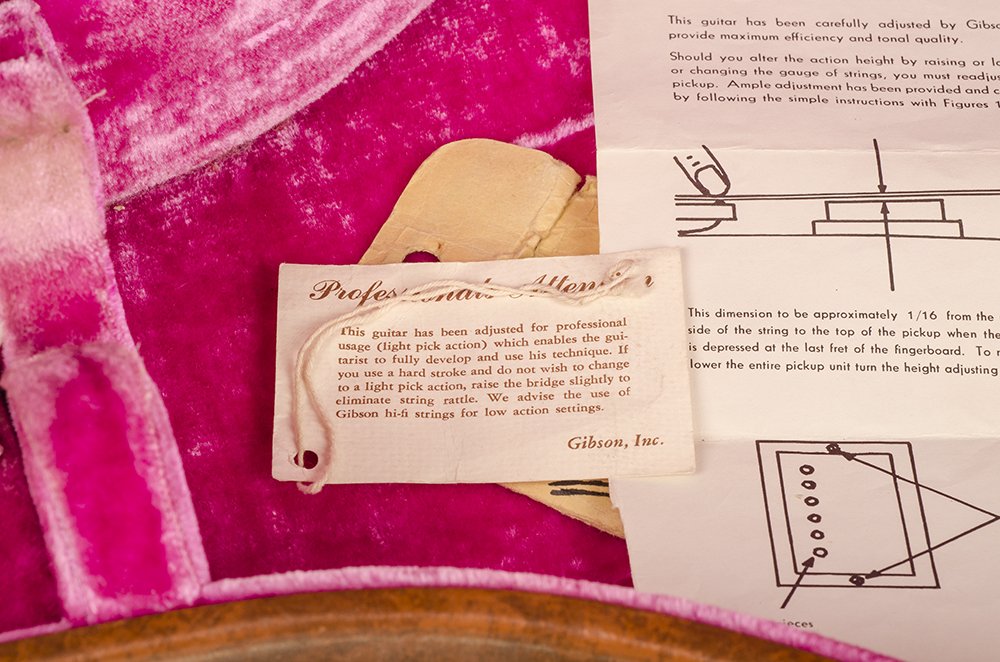 This guitar has been carefully adjusted by Gibso
provide maximum efficiency and tonal quality.
Should you alter the action height by raising or lo
or changing the gauge of strings, you must readjus
pickup. Ample adjustment has been provided and c
by following the simple instructions with Figures 1
This dimension to be approximately 1/16 from the
side of the string to the top of the pickup when the
is depressed at the last fret of the fingerboard. To
lower the entire pickup unit turn the height adjusting
ieces
Professionals Attention
This guitar has been adjusted for professional
usage (light pick action) which enables the gui-
tarist to fully develop and use his technique. If
you use a hard stroke and do not wish to change
to a light pick action, raise the bridge slightly to
eliminate string rattle. We advise the use of
Gibson hi-fi strings for low action settings.
Gibson, Inc.